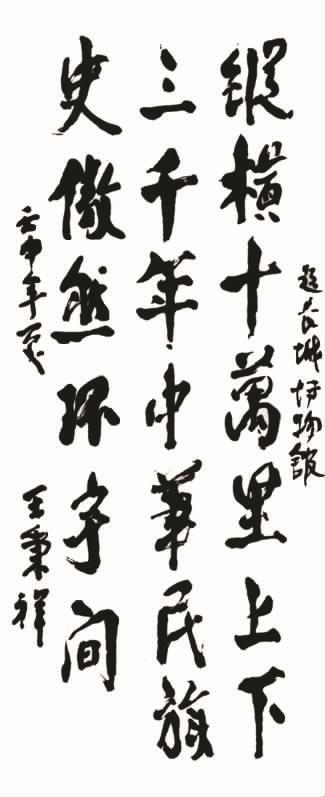 题长城博物館
縱横十萬里上下
三千年中華民族
史傲然环宇间
壬申年夏 王秉祥